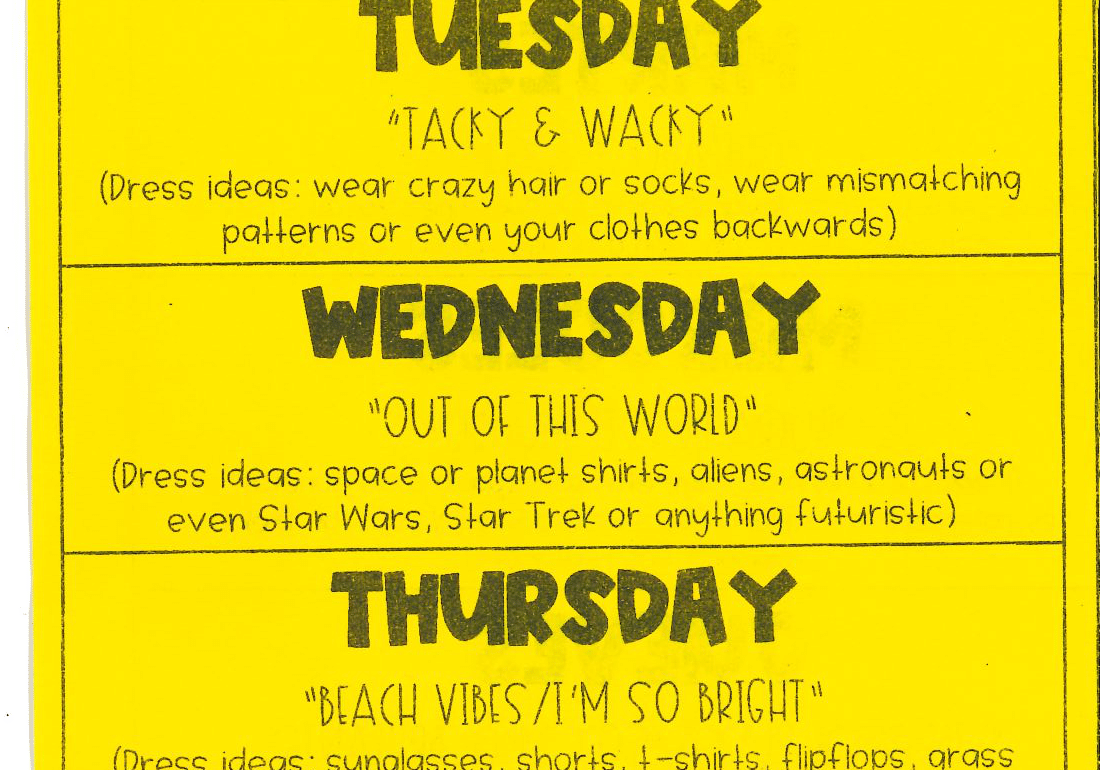 TUESDAY
"TACKY & WACKY"
(Dress ideas: wear crazy hair or socks, wear mismatching
patterns or even your clothes backwards)
WEDNESDAY
"OUT OF THIS WORLD"
(Dress ideas: space or planet shirts, aliens, astronauts or
even Star Wars, Star Trek or anything futuristic)
THURSDAY
"BEACH VIBES/I'M SO BRIGHT"
(Dress ideas: sunglasses, shorts, t-shirts, flipflops, grass